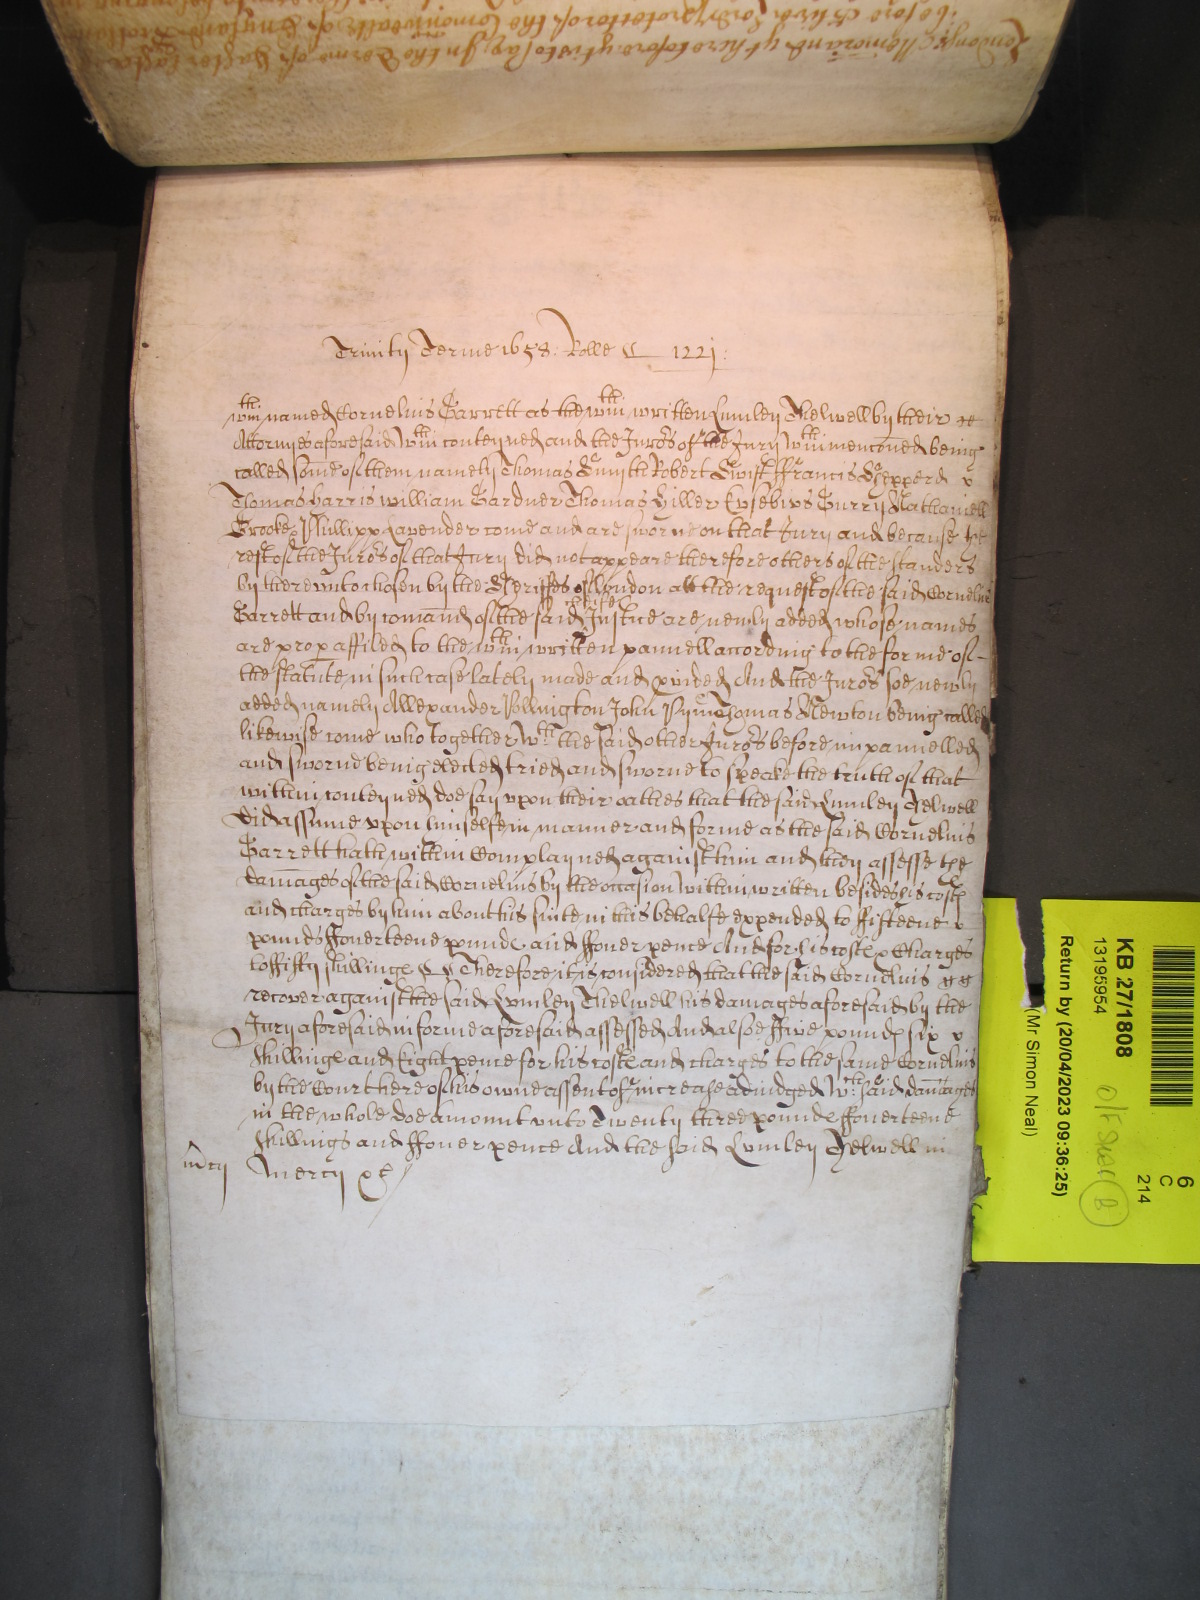 Trinity Terme 1658: Rolle 1221:
wthin named Cornelius Garrett as the wthin written Lumley Thelwell by their
Attornyes aforesaid wthin conteyned and the Juro's of the Jury wthin menconed being
called some of them namely Thomas Smyth Robert Swift Francis Shepperd
Thomas Harris William Gardner Thomas Hiller Eusebius Curry Nathaniell
Crooke Phillipp Lavender come and are sworne on that Jury and because the
rest of the Juro's of that Jury did not appeare therefore others of the standers
by thereunto chosen by the Sheriffes of London att the request of the said Cornelius
Garrett and by comand of the said cheife Justice are newly added whose names
are affiled to the wthin written pannell according to the forme of
the statute in such case lately made and pvided And the Juro's soe newly
added namely Allexander Pollington John Pym Thomas Newton being called
likewise come who together wth the said other Juro's before impannelled
and sworne being elected tried and sworne to speake the truth of that
within conteyned doe say upon their oathes that the said Lumley Thelwell
did assume upon himselfe in manner and forme as the said Cornelius
Garrett hath within Complayned against him and they assesse the
damages of the said Cornelius by the occasion within written besides his costs
and charges by him about his suite in this behalfe expended to ffifteene
pounds ffouerteene pounds and ffouer pence And for his costs & Charges
to ffifty shillings Therefore it is considered that the said Cornelius
recover against the said Lumley Thelwell his damages aforesaid by the
Jury aforesaid in forme aforesaid assessed And alsoe ffive pounds six
shillings and Eight pence for his costs and charges to the same Cornelius
by the Court here of his owne assent of increase adiudged wch said damages
in the whole doe amount unto Twenty three pounds ffouerteene
shillings and ffouer pence And the said Lumley Thelwell in
mcy Mercy &c
KB 27/1808
13195954
Return by (20/04/2023 09:36:25)
(Mr Simon Neal)
6
C
214
B